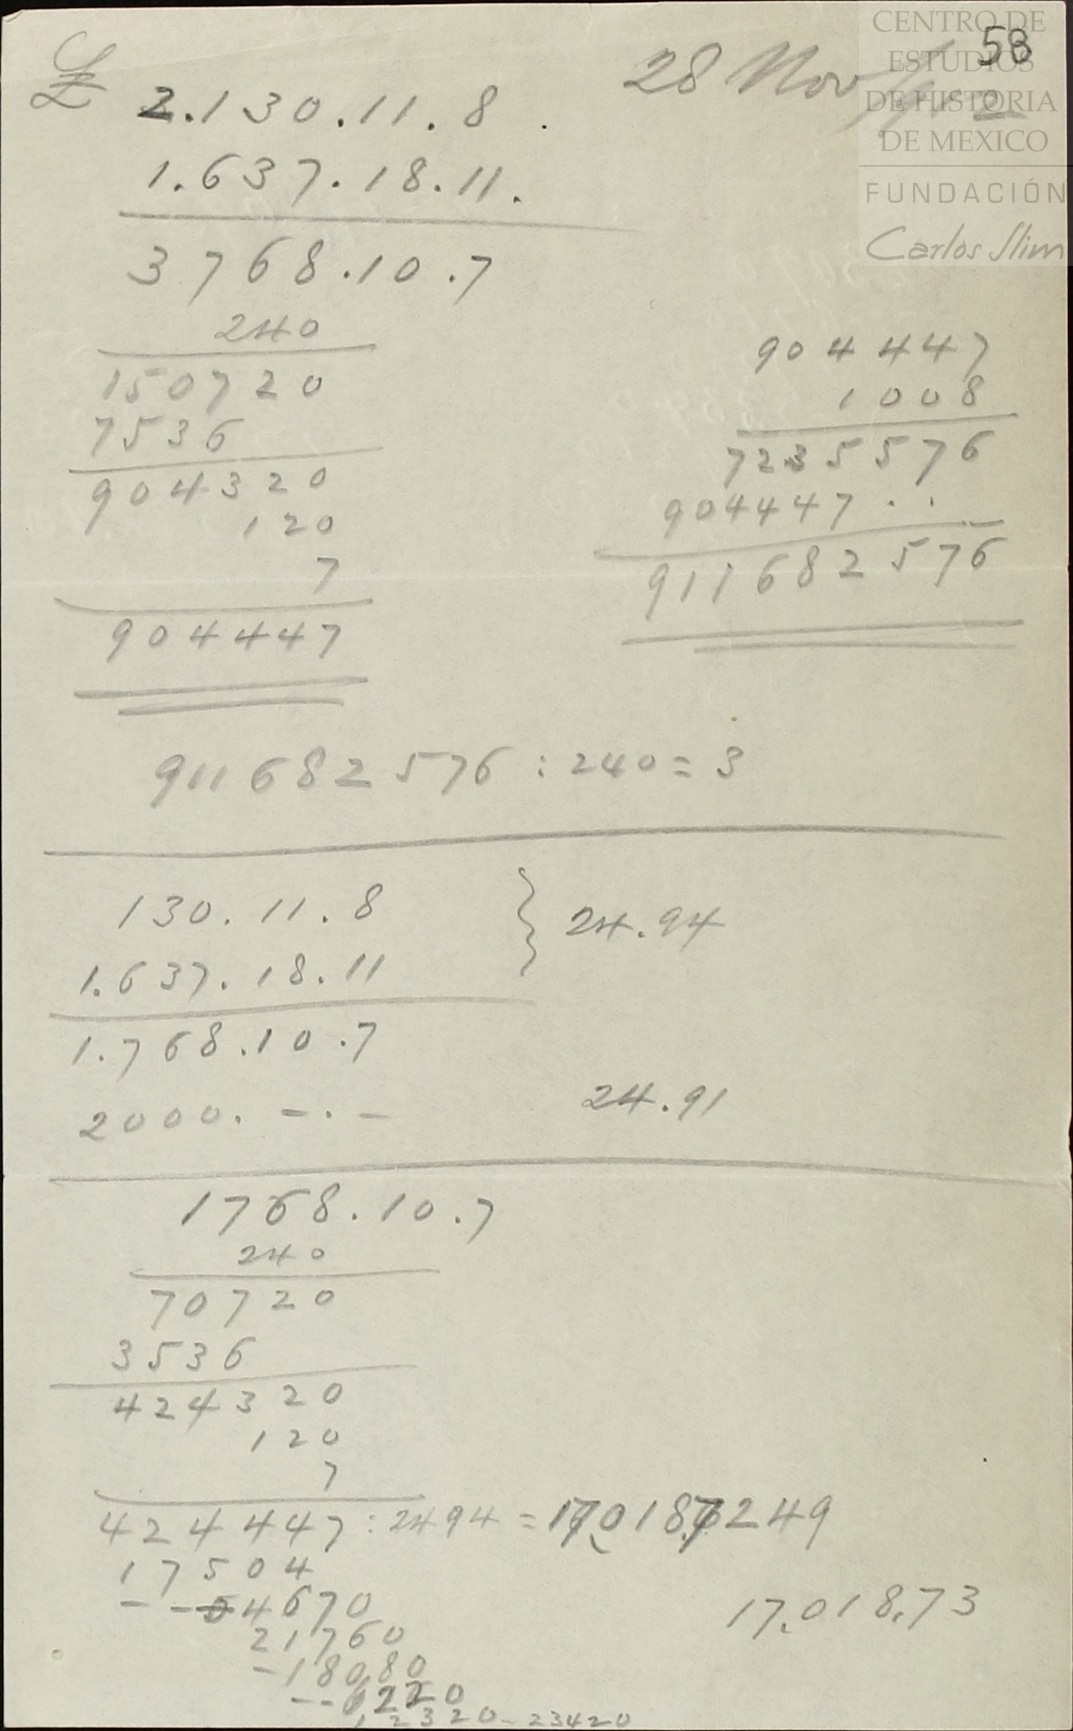 58
28 Nov
£ 2.130.11.8.
1.637.18.11.
3768.10.7
240
150720
7536
904320
120
7
904447
904447
1008
7235576
904447..
911682576
911682576 : 240 = 3
130.11.8 } 24.94
1.637.18.11
1.768.10.7
2000. -.- 24.91
1768.10.7
240
70720
3536
424320
120
7
424447 : 2494 =
17504
-- 04670
21760
-18080
--6220
12320-23420
17.018.73
CENTRO DE
ESTUDIOS
DE HISTORIA
DE MEXICO
FUNDACIÓN
Carlos Slim